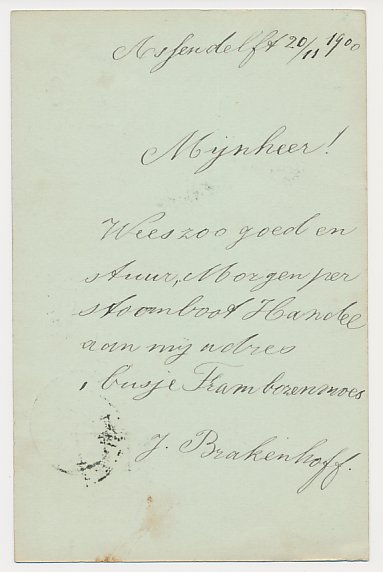 Assendelft 20/11 1900
Mijnheer!
Wees zoo goed en
stuur, Morgen per
stoomboot Handel
aan mij adres
1 busje Frambozenmoes
J. Brakenhoff.